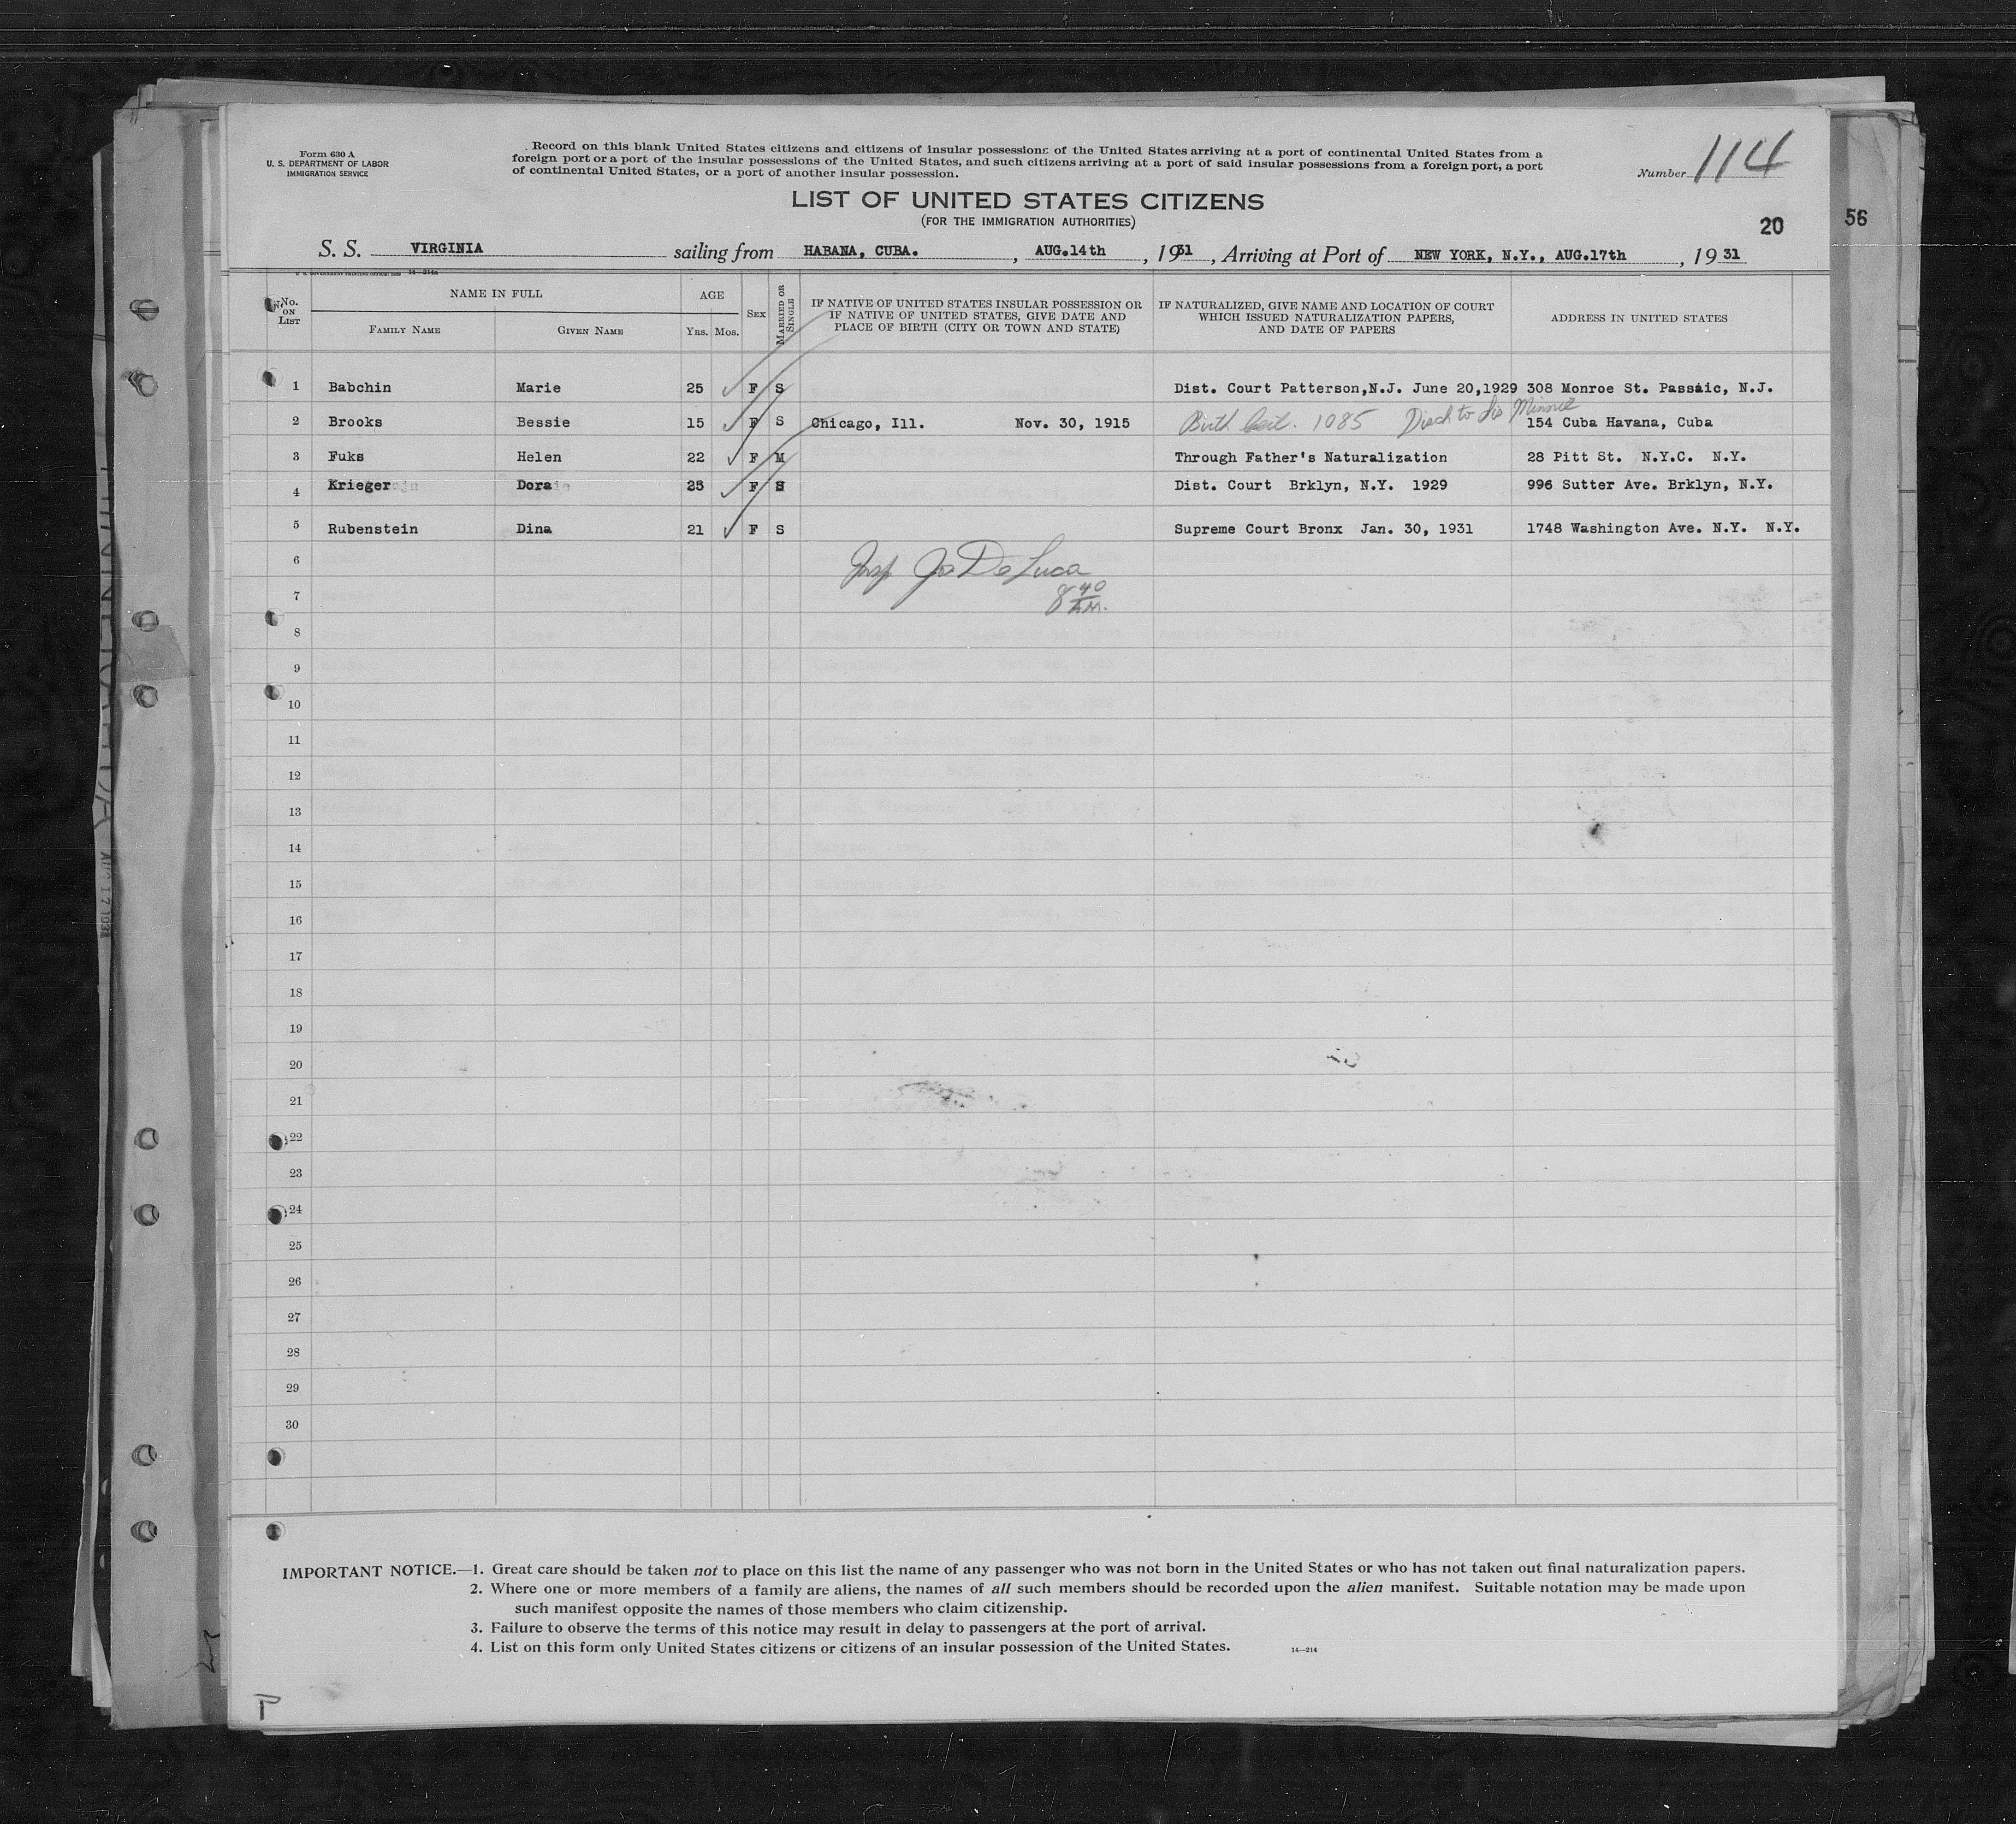 Form 630 A
U. S. DEPARTMENT OF LABOR
IMMIGRATION SERVICE
Record on this blank United States citizens and citizens of insular possessions of the United States arriving at a port of continental United States from a
foreign port or a port of the insular possessions of the United States, and such citizens arriving at a port of said insular possessions from a foreign port, a port
of continental United States, or a port of another insular possession.
Number 114
LIST OF UNITED STATES CITIZENS
(FOR THE IMMIGRATION AUTHORITIES)
20
56
S. S. VIRGINIA sailing from HABANA, CUBA. , AUG.14th , 1931 , Arriving at Port of NEW YORK, N.Y., AUG.17th , 19 31
No. ON LIST
NAME IN FULL
FAMILY NAME
GIVEN NAME
AGE
YRS. MOS.
SEX
MARRIED OR SINGLE
IF NATIVE OF UNITED STATES INSULAR POSSESSION OR
IF NATIVE OF UNITED STATES, GIVE DATE AND
PLACE OF BIRTH (CITY OR TOWN AND STATE)
IF NATURALIZED, GIVE NAME AND LOCATION OF COURT
WHICH ISSUED NATURALIZATION PAPERS,
AND DATE OF PAPERS
ADDRESS IN UNITED STATES
1 Babchin Marie 25 F S Dist. Court Patterson,N.J. June 20,1929 308 Monroe St. Passaic, N.J.
2 Brooks Bessie 15 F S Chicago, Ill. Nov. 30, 1915 Birth Cert. 1085 Disch to sis Minnie 154 Cuba Havana, Cuba
3 Fuks Helen 22 F M Through Father's Naturalization 28 Pitt St. N.Y.C. N.Y.
4 Krieger Dora 25 F S Dist. Court Brklyn, N.Y. 1929 996 Sutter Ave. Brklyn, N.Y.
5 Rubenstein Dina 21 F S Supreme Court Bronx Jan. 30, 1931 1748 Washington Ave. N.Y. N.Y.
6 Insp Jo De Luca
7 8 40 A.M.
8
9
10
11
12
13
14
15
16
17
18
19
20
21
22
23
24
25
26
27
28
29
30
IMPORTANT NOTICE.—1. Great care should be taken not to place on this list the name of any passenger who was not born in the United States or who has not taken out final naturalization papers.
2. Where one or more members of a family are aliens, the names of all such members should be recorded upon the alien manifest. Suitable notation may be made upon
such manifest opposite the names of those members who claim citizenship.
3. Failure to observe the terms of this notice may result in delay to passengers at the port of arrival.
4. List on this form only United States citizens or citizens of an insular possession of the United States.
14—214